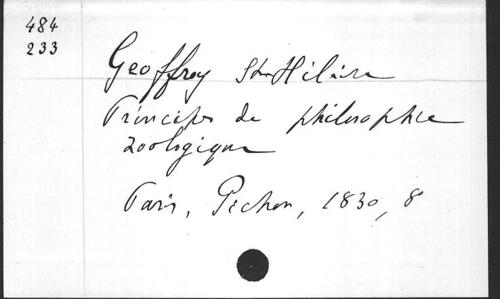 484
233
Geoffroy St Hilaire
Principes de philosophie
zoologique
Paris, Pichon, 1830, 8°